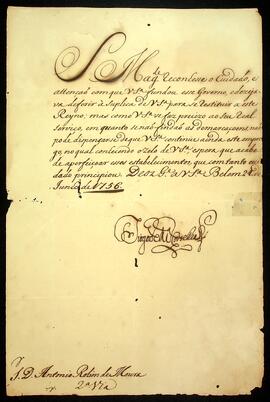 S. Mag.de reconhece o cuidado, e
attençaõ com que V.S.a fundou esse Governo, e dezeja
va deferir à suplica de V.S.a para se restituir a este
Reyno; mas como V.S.a se faz precizo ao seu Real
serviço, em quanto se naõ findaõ as demarcaçoens naõ
pode dispensar de que V.S.a continue ainda este emprego
no qual conhecendo o zelo de V.S.a espera que acabe
de aperfeiçoar esses estabelecimentos, que com tanto cui
dado principiou. Deos g.e a V.S.a Belem 2 de
Junho de 1756.
S. D. Antonio Rolim de Moura
2.a Via